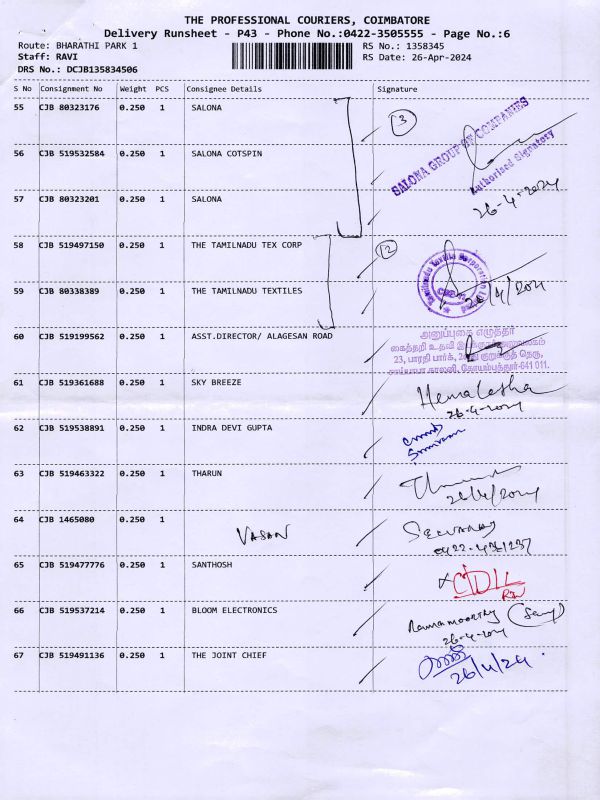 THE PROFESSIONAL COURIERS, COIMBATORE
Delivery Runsheet - P43 - Phone No.:0422-3505555 - Page No.:6
Route: BHARATHI PARK 1 RS No.: 1358345
Staff: RAVI RS Date: 26-Apr-2024
DRS No.: DCJB135834506
S No Consignment No Weight PCS Consignee Details Signature
55 CJB 80323176 0.250 1 SALONA
3
SALONA GROUP OF COMPANIES
Authorised Signatory
26-4-2024
56 CJB 519532584 0.250 1 SALONA COTSPIN
57 CJB 80323201 0.250 1 SALONA
58 CJB 519497150 0.250 1 THE TAMILNADU TEX CORP
2
26/4/2024
59 CJB 80338389 0.250 1 THE TAMILNADU TEXTILES
60 CJB 519199562 0.250 1 ASST.DIRECTOR/ ALAGESAN ROAD
அனுப்புகை எழுத்தர்
கைத்தறி உதவி
23, பாரதி பார்க், குறுக்குத் தெரு,
காலனி, கோயம்புத்தூர்-641 011.
61 CJB 519361688 0.250 1 SKY BREEZE Hemalatha
26-4-2024
62 CJB 519538891 0.250 1 INDRA DEVI GUPTA
63 CJB 519463322 0.250 1 THARUN
26/4/2024
64 CJB 1465080 0.250 1 VASAN SELVARAJ
65 CJB 519477776 0.250 1 SANTHOSH
66 CJB 519537214 0.250 1 BLOOM ELECTRONICS Ramamoorthy
26-4-2024
67 CJB 519491136 0.250 1 THE JOINT CHIEF
26/4/24